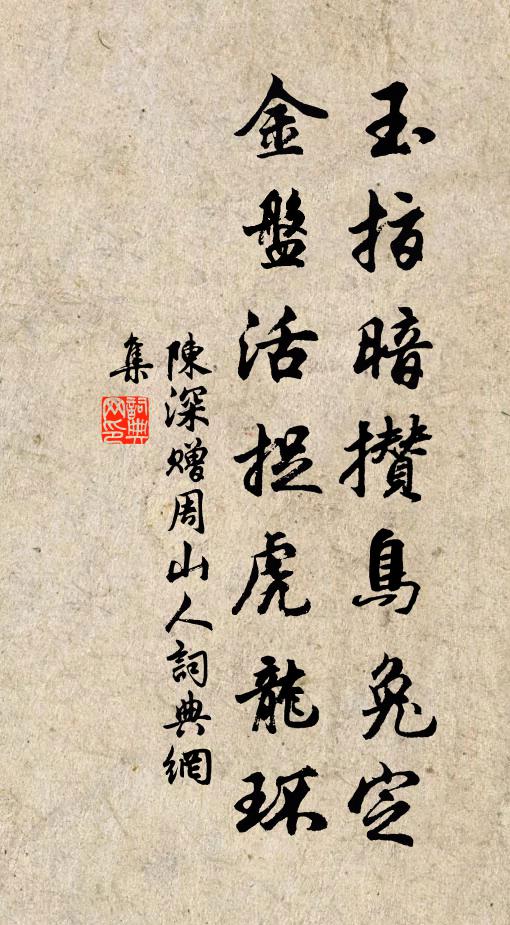 玉指暗攢烏兔定
金盤活捉虎龍环
陳深贈周山人詞典網
集
詞典
网印